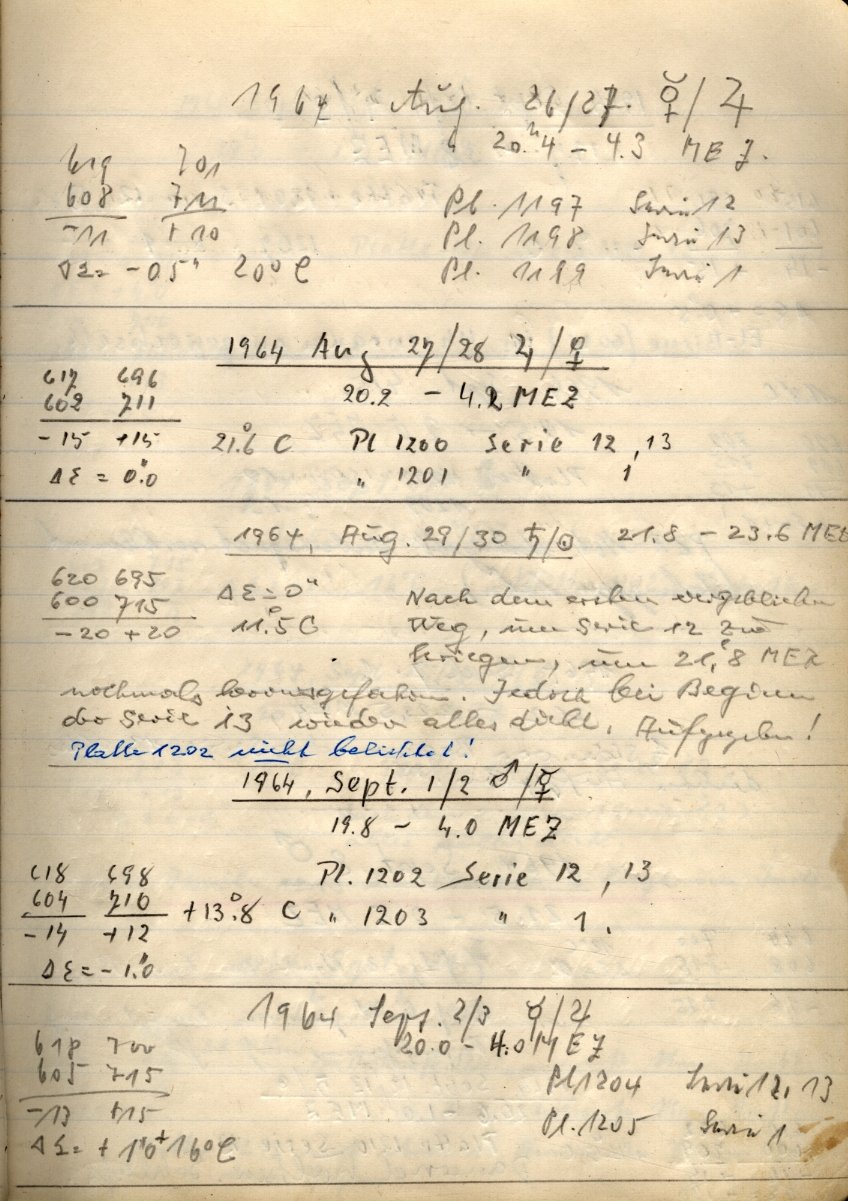 1964 Aug. 26/27. ☿/♃
20.ʰ4 – 4.3 MEZ.
619 701
608 711
-11 +10
Δε = -0.5" 20° C
Pl. 1197 Serie 12
Pl. 1198 Serie 13
Pl. 1199 Serie 1
1964 Aug 27/28 ♃/♀
20.2 – 4.2 MEZ
617 696
602 711
-15 +15 21.°6 C Pl 1200 Serie 12, 13
Δε = 0."0 " 1201 " 1
1964, Aug. 29/30 ♄/☉ 21.8 – 23.6 MEZ
620 695
600 715
-20 +20
Δε = 0"
11.°5 C
Nach dem ersten vergeblichen
Weg, um Serie 12 zu
kriegen, um 21,8 MEZ
nochmals herausgefahren. Jedoch bei Beginn
der Serie 13 wieder alles dicht. Aufgegeben!
Platte 1202 nicht belichtet!
1964, Sept. 1/2 ♂/☿
19.8 – 4.0 MEZ
618 698
604 710
-14 +12
Δε = -1."0
+13.°8 C
Pl. 1202 Serie 12, 13
" 1203 " 1.
1964 Sept. 2/3 ☿/♃
20.0 – 4.0 MEZ
618 700
605 715
-13 +15
Δε = +1."0 +16° C
Pl 1204 Serie 12, 13
Pl. 1205 Serie 1